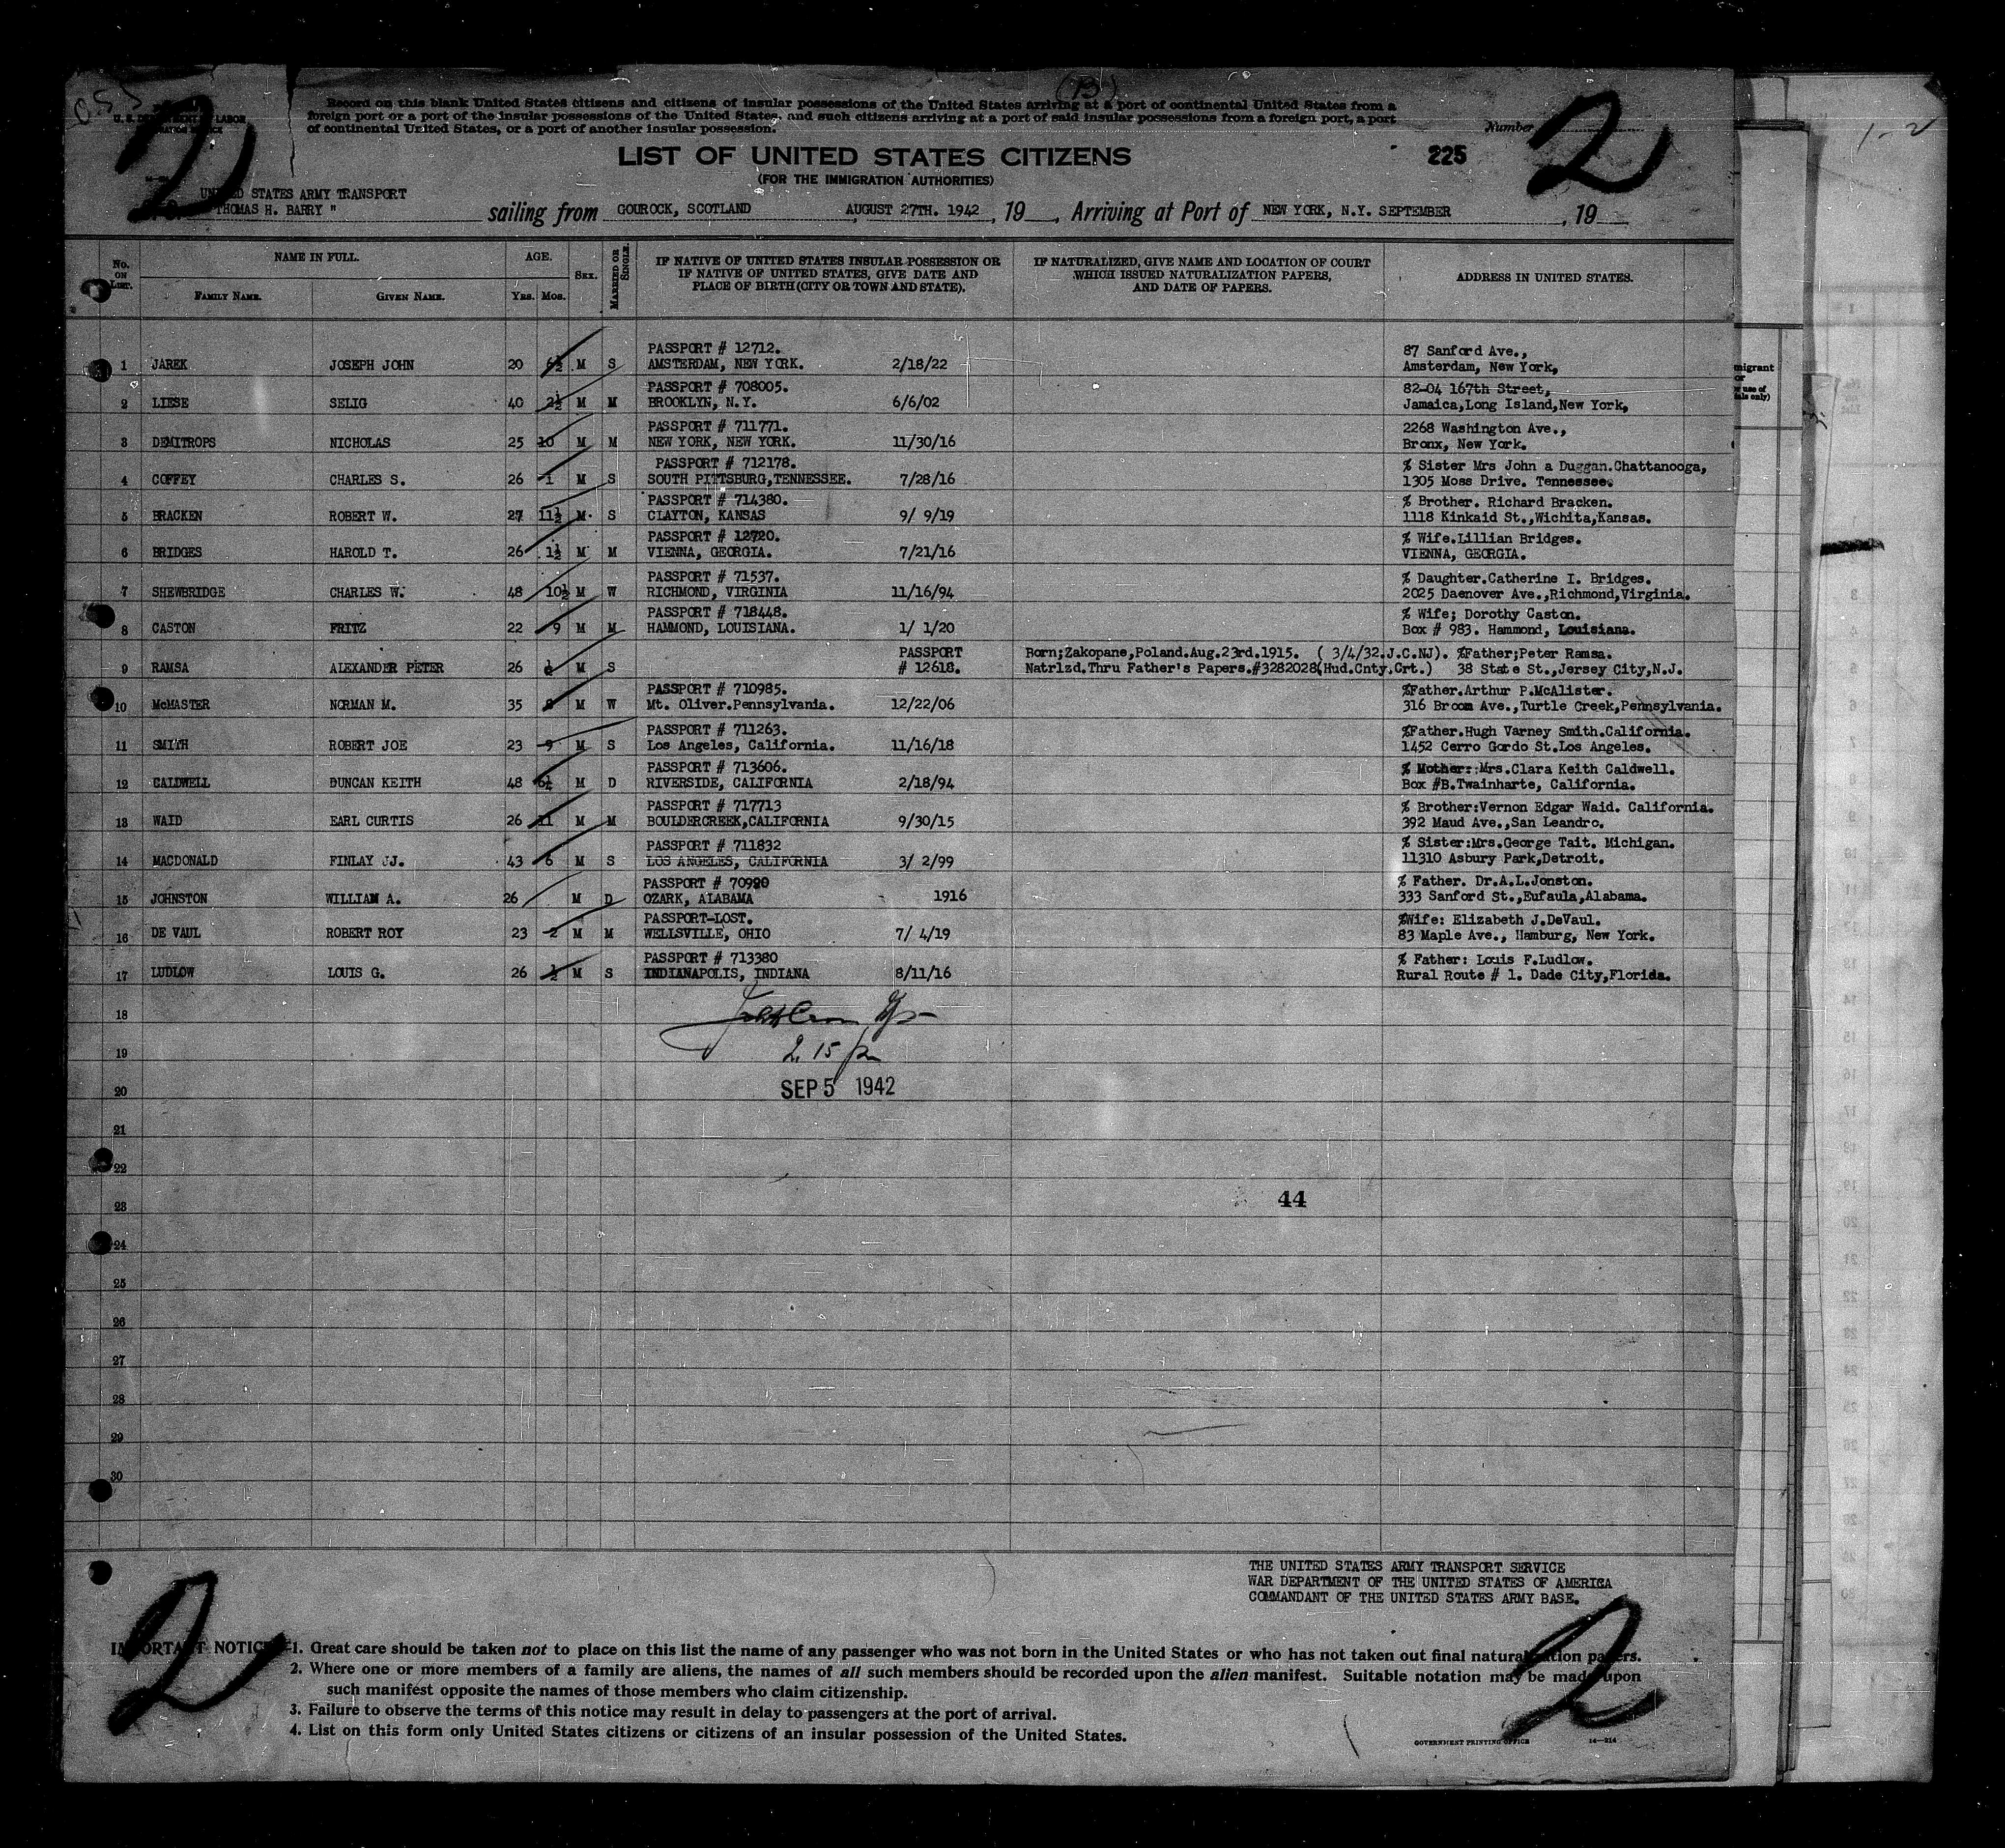 (B)
U. S. DEPARTMENT OF LABOR
Record on this blank United States citizens and citizens of insular possessions of the United States arriving at a port of continental United States from a
foreign port or a port of the insular possessions of the United States, and such citizens arriving at a port of said insular possessions from a foreign port, a port
of continental United States, or a port of another insular possession.
2
Number
2
LIST OF UNITED STATES CITIZENS
225
(FOR THE IMMIGRATION AUTHORITIES)
1-2
UNITED STATES ARMY TRANSPORT
THOMAS H. BARRY " sailing from GOUROCK, SCOTLAND AUGUST 27TH. 1942, 19 , Arriving at Port of NEW YORK, N.Y. SEPTEMBER , 19
No. ON LIST. NAME IN FULL. AGE. SEX. MARRIED OR SINGLE. IF NATIVE OF UNITED STATES INSULAR POSSESSION OR IF NATIVE OF UNITED STATES, GIVE DATE AND PLACE OF BIRTH (CITY OR TOWN AND STATE). IF NATURALIZED, GIVE NAME AND LOCATION OF COURT WHICH ISSUED NATURALIZATION PAPERS, AND DATE OF PAPERS. ADDRESS IN UNITED STATES.
FAMILY NAME. GIVEN NAME. YRS. MOS.
PASSPORT # 12712. 87 Sanford Ave.,
1 JAREK JOSEPH JOHN 20 6½ M S AMSTERDAM, NEW YORK. 2/18/22 Amsterdam, New York,
PASSPORT # 708005. 82-04 167th Street,
2 LIESE SELIG 40 2½ M M BROOKLYN, N.Y. 6/6/02 Jamaica,Long Island,New York,
PASSPORT # 711771. 2268 Washington Ave.,
3 DEMITROPS NICHOLAS 25 10 M M NEW YORK, NEW YORK. 11/30/16 Bronx, New York.
PASSPORT # 712178. % Sister Mrs John a Duggan.Chattanooga,
4 COFFEY CHARLES S. 26 1 M S SOUTH PITTSBURG,TENNESSEE. 7/28/16 1305 Moss Drive. Tennessee.
PASSPORT # 714380. % Brother. Richard Bracken.
5 BRACKEN ROBERT W. 27 11½ M S CLAYTON, KANSAS 9/ 9/19 1118 Kinkaid St.,Wichita,Kansas.
PASSPORT # 12720. % Wife.Lillian Bridges.
6 BRIDGES HAROLD T. 26 1½ M M VIENNA, GEORGIA. 7/21/16 VIENNA, GEORGIA.
PASSPORT # 71537. % Daughter.Catherine I. Bridges.
7 SHEWBRIDGE CHARLES W. 48 10½ M W RICHMOND, VIRGINIA 11/16/94 2025 Daenover Ave.,Richmond,Virginia.
PASSPORT # 718448. % Wife; Dorothy Caston.
8 CASTON FRITZ 22 9 M M HAMMOND, LOUISIANA. 1/ 1/20 Box # 983. Hammond, Louisiana.
PASSPORT Born;Zakopane,Poland.Aug.23rd.1915. ( 3/4/32.J.C.NJ). %Father;Peter Ramsa.
9 RAMSA ALEXANDER PETER 26 M S # 12618. Natrlzd.Thru Father's Papers.#3282028(Hud.Cnty.Crt.) 38 State St.,Jersey City,N.J.
PASSPORT # 710985. %Father.Arthur P.McAlister.
10 McMASTER NORMAN M. 35 M W Mt. Oliver.Pennsylvania. 12/22/06 316 Broom Ave.,Turtle Creek,Pennsylvania.
PASSPORT # 711263. %Father.Hugh Varney Smith.California.
11 SMITH ROBERT JOE 23 9 M S Los Angeles, California. 11/16/18 1452 Cerro Gordo St.Los Angeles.
PASSPORT # 713606. % Mother:Mrs.Clara Keith Caldwell.
12 CALDWELL DUNCAN KEITH 48 6½ M D RIVERSIDE, CALIFORNIA 2/18/94 Box #B.Twainharte, California.
PASSPORT # 717713 % Brother:Vernon Edgar Waid. California.
13 WAID EARL CURTIS 26 11 M M BOULDERCREEK,CALIFORNIA 9/30/15 392 Maud Ave.,San Leandro.
PASSPORT # 711832 % Sister:Mrs.George Tait. Michigan.
14 MACDONALD FINLAY JJ. 43 6 M S LOS ANGELES, CALIFORNIA 3/ 2/99 11310 Asbury Park,Detroit.
PASSPORT # 70920 % Father. Dr.A.L.Jonston.
15 JOHNSTON WILLIAM A. 26 M D OZARK, ALABAMA 1916 333 Sanford St.,Eufaula,Alabama.
PASSPORT-LOST. %Wife: Elizabeth J.DeVaul.
16 DE VAUL ROBERT ROY 23 2 M M WELLSVILLE, OHIO 7/ 4/19 83 Maple Ave., Hamburg, New York.
PASSPORT # 713380 % Father: Louis F.Ludlow.
17 LUDLOW LOUIS G. 26 ½ M S INDIANAPOLIS, INDIANA 8/11/16 Rural Route # 1. Dade City,Florida.
18
19
2.15 p
20 SEP 5 1942
21
22
23 44
24
25
26
27
28
29
30
THE UNITED STATES ARMY TRANSPORT SERVICE
WAR DEPARTMENT OF THE UNITED STATES OF AMERICA
COMMANDANT OF THE UNITED STATES ARMY BASE.
2
2
IMPORTANT NOTICE—1. Great care should be taken not to place on this list the name of any passenger who was not born in the United States or who has not taken out final naturalization papers.
2. Where one or more members of a family are aliens, the names of all such members should be recorded upon the alien manifest. Suitable notation may be made upon
such manifest opposite the names of those members who claim citizenship.
3. Failure to observe the terms of this notice may result in delay to passengers at the port of arrival.
4. List on this form only United States citizens or citizens of an insular possession of the United States.
GOVERNMENT PRINTING OFFICE 14—214